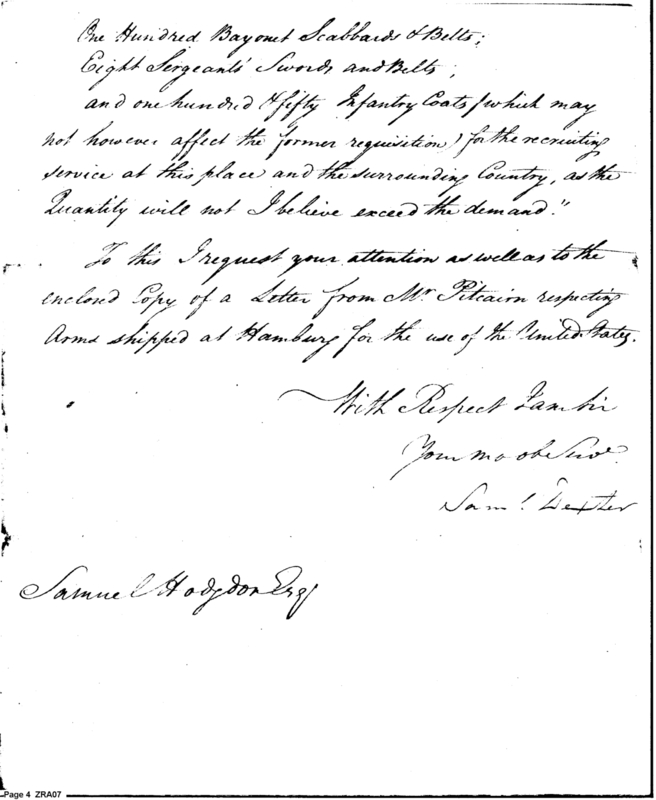 One Hundred Bayonet Scabbards & Belts;
Eight Sergeants' Swords and Belts;
and one hundred & fifty Infantry Coats (which may
not however affect the former requisition) for the recruiting
service at this place and the surrounding Country, as the
Quantity will not I believe exceed the demand."
To this I request your attention as well as to the
enclosed Copy of a Letter from Mr Pitcairn respecting
Arms shipped at Hamburg for the use of the United States.
With Respect I am Sir
Your mo ob Serv
Saml. Dexter
Samuel Hodgdon Esq
Page 4 ZRA07